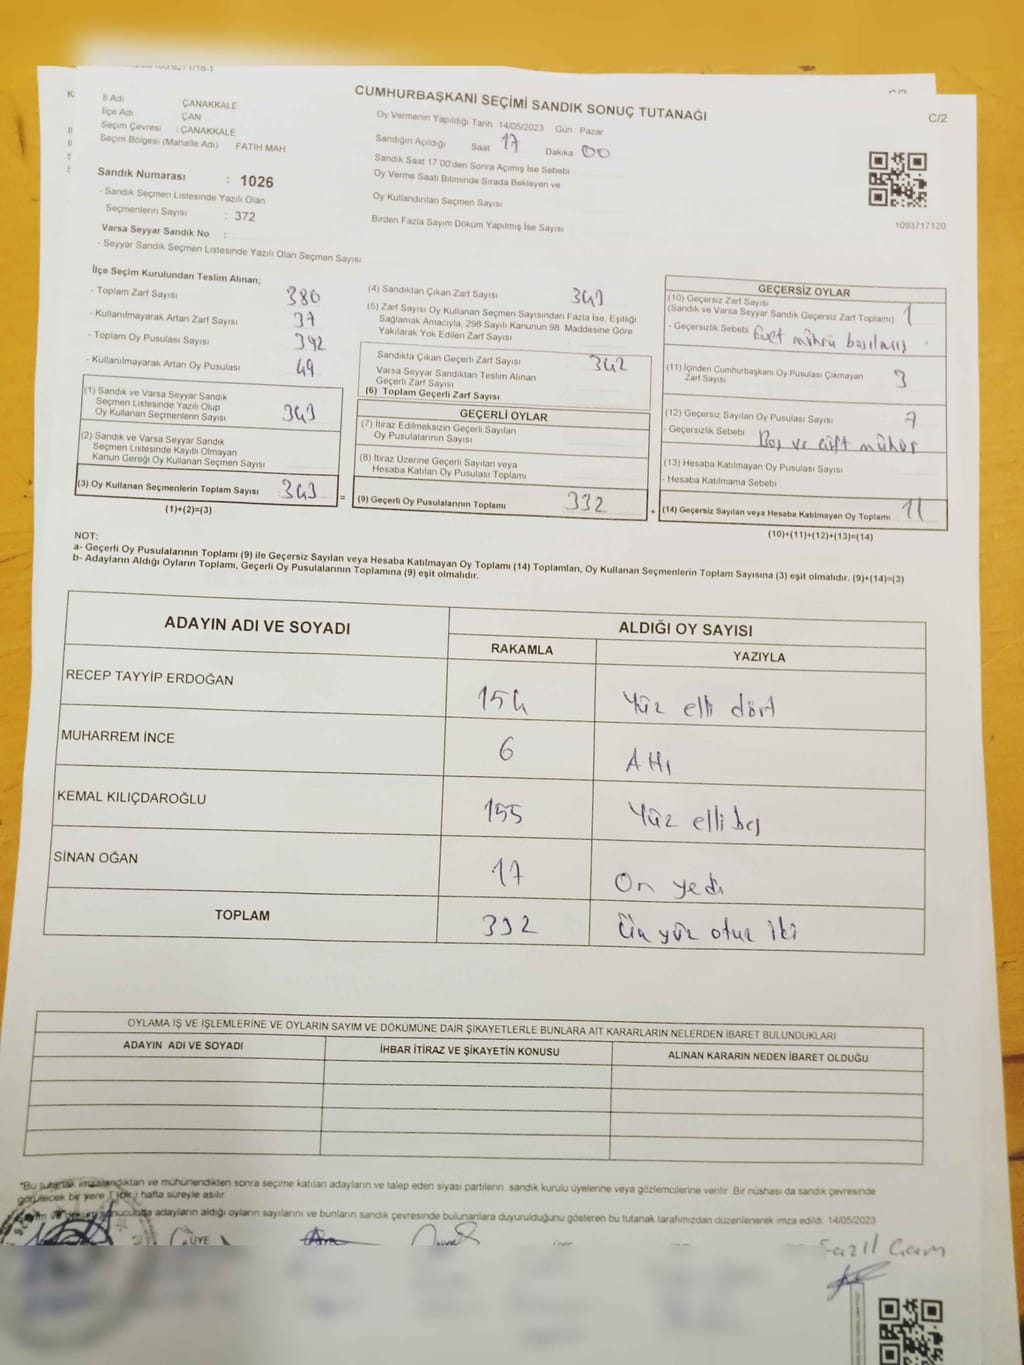 CUMHURBAŞKANI SEÇİMİ SANDIK SONUÇ TUTANAĞI
C/2
İl Adı ÇANAKKALE
İlçe Adı ÇAN
Seçim Çevresi : ÇANAKKALE
Seçim Bölgesi (Mahalle Adı) FATİH MAH.
Oy Vermenin Yapıldığı Tarih 14/05/2023 Gün Pazar
Sandığın Açıldığı Saat 17 Dakika 00
Sandık Saat 17 00'den Sonra Açılmış İse Sebebi
Oy Verme Saati Bitiminde Sırada Bekleyen ve
Oy Kullandırılan Seçmen Sayısı
Birden Fazla Sayım Döküm Yapılmış İse Sayısı
1093717120
Sandık Numarası : 1026
- Sandık Seçmen Listesinde Yazılı Olan
Seçmenlerin Sayısı : 372
Varsa Seyyar Sandık No :
- Seyyar Sandık Seçmen Listesinde Yazılı Olan Seçmen Sayısı
İlçe Seçim Kurulundan Teslim Alınan;
- Toplam Zarf Sayısı 380
- Kullanılmayarak Artan Zarf Sayısı 37
- Toplam Oy Pusulası Sayısı 392
- Kullanılmayarak Artan Oy Pusulası 49
(1) Sandık ve Varsa Seyyar Sandık
Seçmen Listesinde Yazılı Olup
Oy Kullanan Seçmenlerin Sayısı 343
(2) Sandık ve Varsa Seyyar Sandık
Seçmen Listesinde Kayıtlı Olmayan
Kanun Gereği Oy Kullanan Seçmen Sayısı
(3) Oy Kullanan Seçmenlerin Toplam Sayısı 343
(1)+(2)=(3)
=
(4) Sandıktan Çıkan Zarf Sayısı 343
(5) Zarf Sayısı Oy Kullanan Seçmen Sayısından Fazla İse, Eşitliği
Sağlamak Amacıyla, 298 Sayılı Kanunun 98. Maddesine Göre
Yakılarak Yok Edilen Zarf Sayısı
Sandıkta Çıkan Geçerli Zarf Sayısı 342
Varsa Seyyar Sandıktan Teslim Alınan
Geçerli Zarf Sayısı
(6) Toplam Geçerli Zarf Sayısı
GEÇERLİ OYLAR
(7) İtiraz Edilmeksizin Geçerli Sayılan
Oy Pusulalarının Sayısı
(8) İtiraz Üzerine Geçerli Sayılan veya
Hesaba Katılan Oy Pusulası Toplamı
(9) Geçerli Oy Pusulalarının Toplamı 332
+
GEÇERSİZ OYLAR
(10) Geçersiz Zarf Sayısı
(Sandık ve Varsa Seyyar Sandık Geçersiz Zarf Toplamı) 1
- Geçersizlik Sebebi Evet mührü basılmış
(11) İçinden Cumhurbaşkanı Oy Pusulası Çıkmayan
Zarf Sayısı 3
(12) Geçersiz Sayılan Oy Pusulası Sayısı 7
- Geçersizlik Sebebi Boş ve çift mühür
(13) Hesaba Katılmayan Oy Pusulası Sayısı
- Hesaba Katılmama Sebebi
(14) Geçersiz Sayılan veya Hesaba Katılmayan Oy Toplamı 11
(10)+(11)+(12)+(13)=(14)
NOT:
a- Geçerli Oy Pusulalarının Toplamı (9) ile Geçersiz Sayılan veya Hesaba Katılmayan Oy Toplamı (14) Toplamları, Oy Kullanan Seçmenlerin Toplam Sayısına (3) eşit olmalıdır. (9)+(14)=(3)
b- Adayların Aldığı Oyların Toplamı, Geçerli Oy Pusulalarının Toplamına (9) eşit olmalıdır.
ADAYIN ADI VE SOYADI ALDIĞI OY SAYISI
RAKAMLA YAZIYLA
RECEP TAYYİP ERDOĞAN 154 Yüz elli dört
MUHARREM İNCE 6 Altı
KEMAL KILIÇDAROĞLU 155 Yüz elli beş
SİNAN OĞAN 17 On yedi
TOPLAM 332 Üç yüz otuz iki
OYLAMA İŞ VE İŞLEMLERİNE VE OYLARIN SAYIM VE DÖKÜMÜNE DAİR ŞİKAYETLERLE BUNLARA AİT KARARLARIN NELERDEN İBARET BULUNDUKLARI
ADAYIN ADI VE SOYADI İHBAR İTİRAZ VE ŞİKAYETİN KONUSU ALINAN KARARIN NEDEN İBARET OLDUĞU
*Bu tutanak imzalandıktan ve mühürlendikten sonra seçime katılan adayların ve talep eden siyasi partilerin sandık kurulu üyelerine veya gözlemcilerine verilir. Bir nüshası da sandık çevresinde
görülecek bir yere 1 (bir) hafta süreyle asılır.
sonucunda adayların aldığı oyların sayılarını ve bunların sandık çevresinde bulunanlara duyurulduğunu gösteren bu tutanak tarafımızdan düzenlenerek imza edildi. 14/05/2023
ÜYE